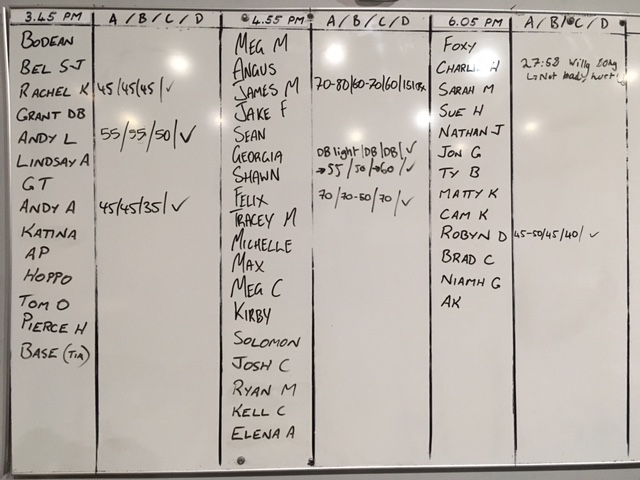 3.45 PM A / B / C / D
BODEAN
BEL S-J
RACHEL K 45/45/45/✓
GRANT DB
ANDY L 55/55/50/✓
LINDSAY A
GT
ANDY A 45/45/35/✓
KATINA
AP
HOPPO
TOM O
PIERCE H
BASE (TIA)
4.55 PM A / B / C / D
MEG M
ANGUS
JAMES M 70-80/60-70/60/
JAKE F
SEAN
GEORGIA DB light/DB/DB/✓
SHAWN →55/50/→60/✓
FELIX 70/70-50/70/✓
TRACEY M
MICHELLE
MAX
MEG C
KIRBY
SOLOMON
JOSH C
RYAN M
KELL C
ELENA A
6.05 PM A / B / C / D
FOXY
CHARLIE H 27:58 Willy
↳Not badly hurt
SARAH M
SUE H
NATHAN J
JON G
TY B
MATTY K
CAM K
ROBYN D 45-50/45/40/✓
BRAD C
NIAMH G
AK